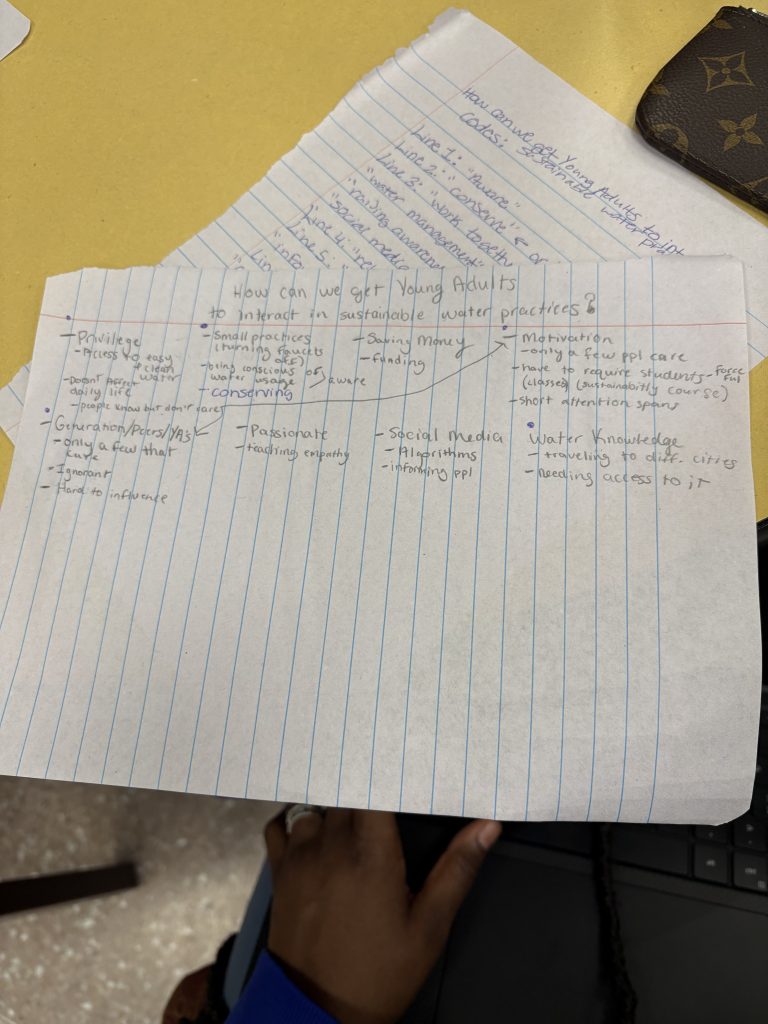 How can we get Young Adults to int
codes: sustainable water pra
Line 1: "Aware"
Line 2: "conserve" or
Line 3: "work togeth
"water management"
"raising awaren
"social media
Line 4: "ne
Line 5:
"info
Lin
How can we get Young Adults
to interact in sustainable water practices?
- Privilege
- Access to easy
+ clean
water
- Doesnt affect
daily life
- people know but don't care
- Small practices
(turning faucets
off)
- being conscious of
water usage
aware
- conserving
- Saving Money
- funding
- Motivation
- only a few ppl care
- have to require students - force
ful
(classes) (sustainability course)
- short attention spans
- Generation/Peers/YAs
- only a few that
care
- Ignorant
- Hard to influence
- Passionate
- teaching empathy
- Social Media
- Algorithms
- informing ppl
Water Knowledge
- traveling to diff. cities
- needing access to it